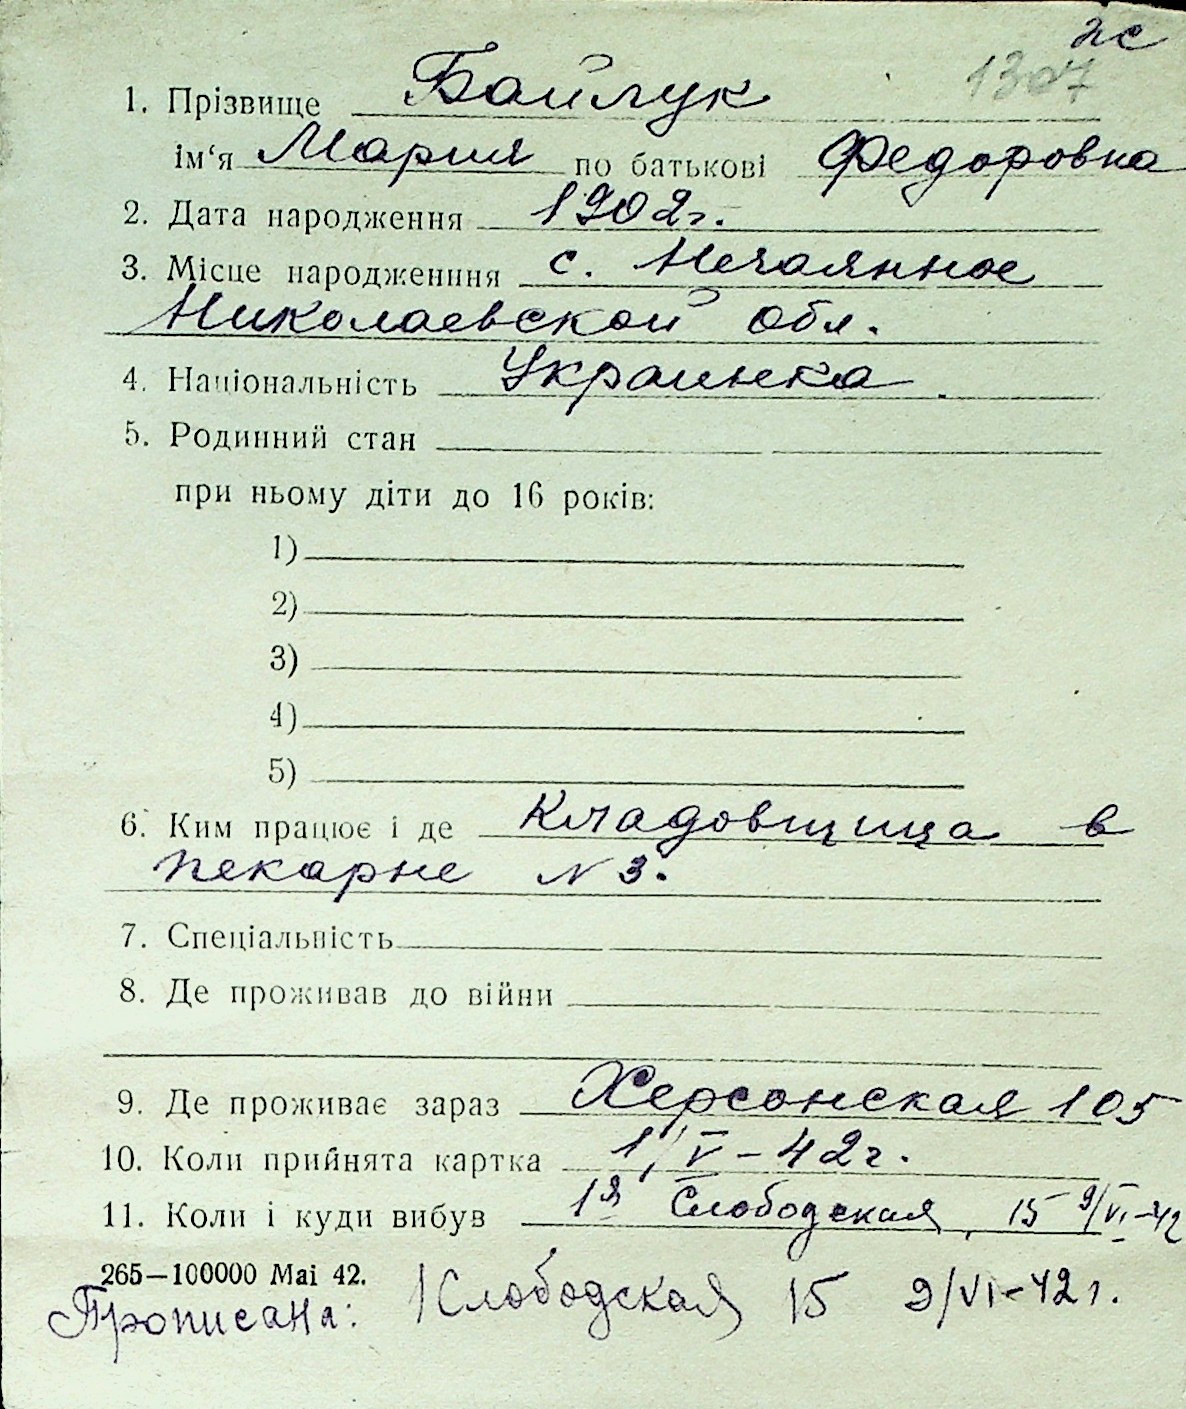 жс
1307
1. Прізвище Байлук
ім‘я Мария по батькові Федоровна
2. Дата народження 1902г.
3. Місце народженння с. Нечаянное
Николаевской обл.
4. Національність Украинка
5. Родинний стан
при ньому діти до 16 років:
1)
2)
3)
4)
5)
6. Ким працює і де Кладовщица в
пекарне N 3.
7. Спеціальність
8. Де проживав до війни
9. Де проживає зараз Херсонская 105
10. Коли прийнята картка 1/V – 42г.
11. Коли і куди вибув 1я Слободская, 15 9/VI–42
265—100000 Mai 42.
Прописана: 1 Слободская 15 9/VI–42г.